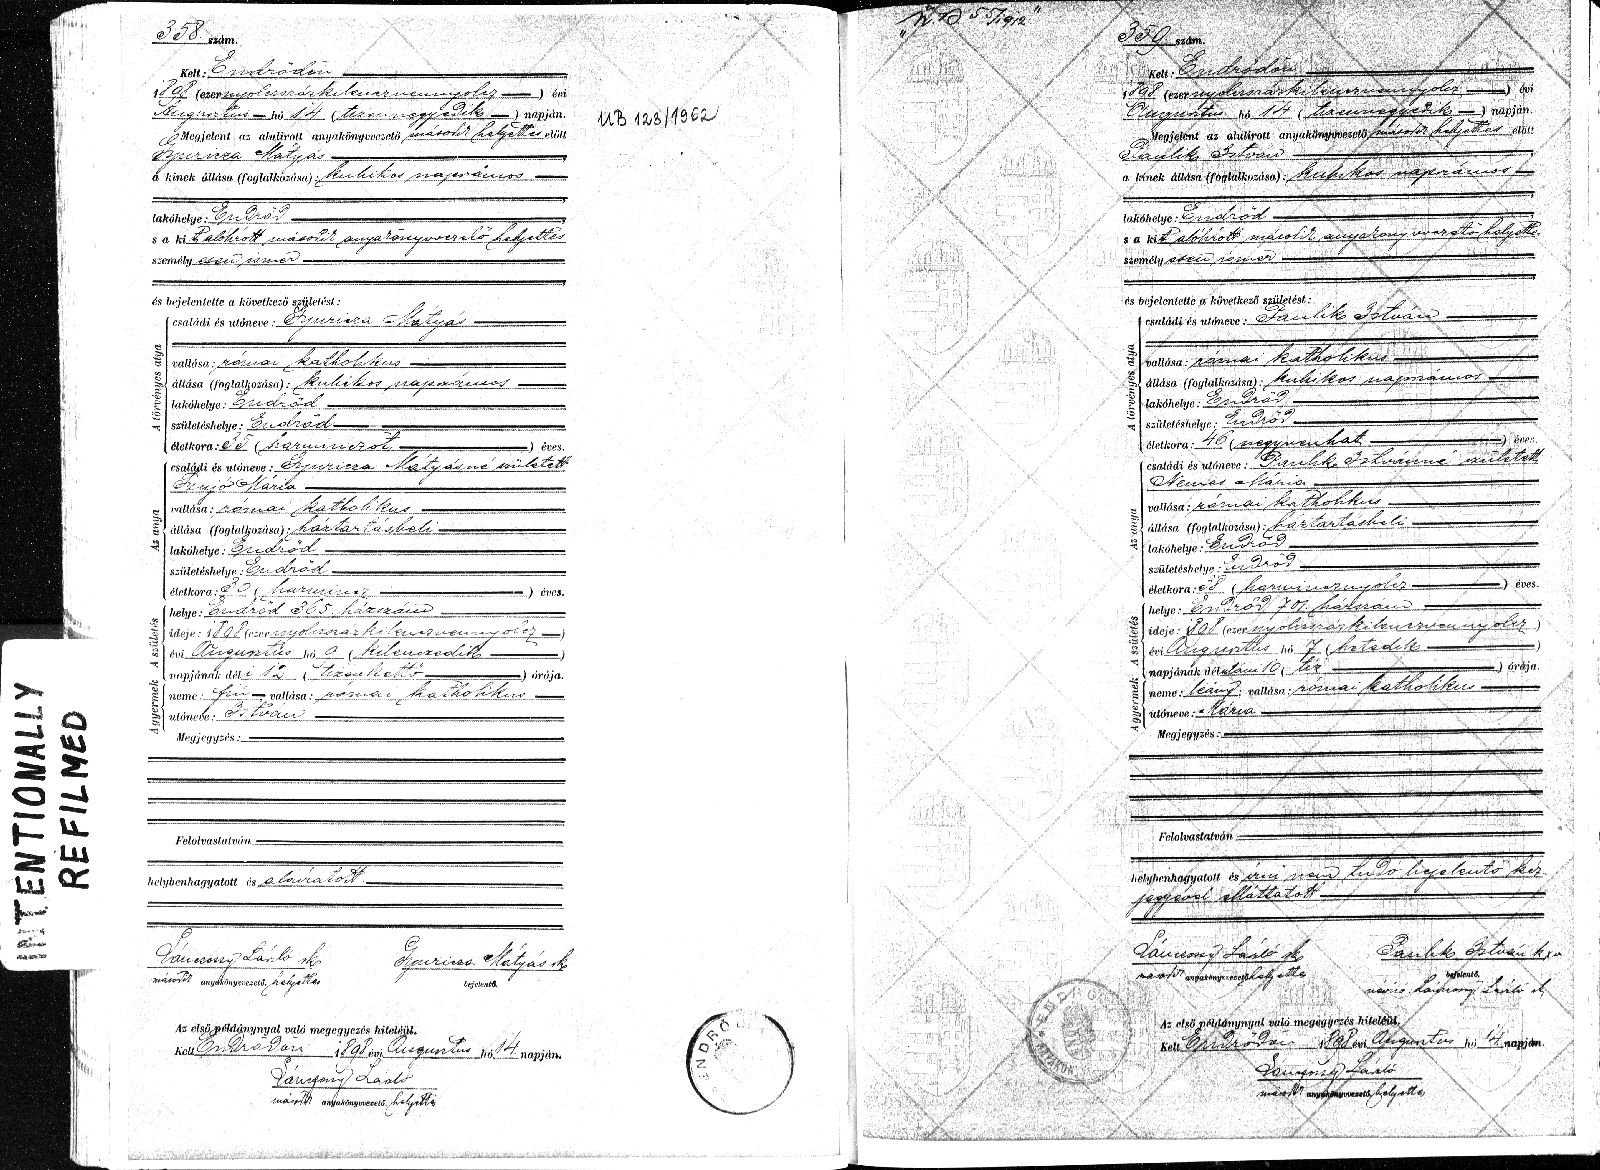 358. szám.
Kelt: Endrődön
1898 (ezernyolczszázkilenczvennyolcz) évi
Augusztus hó 14 (tizennegyedik) napján.
Megjelent az alulirott anyakönyvvezető másodr helyettes előtt
Mátyás
a kinek állása (foglalkozása): kubikos napszámos
lakóhelye: Endrőd
s a kit alólirott másodr anyakönyvvezető helyettes
személy esen ismer
és bejelentette a következő születést:
A törvényes atya
családi és utóneve: Mátyás
vallása: római katholikus
állása (foglalkozása): kubikos napszámos
lakóhelye: Endrőd
születéshelye: Endrőd
életkora: 35 (harminczöt) éves.
Az anya
családi és utóneve: Mátyásné született
Mária
vallása: római katholikus
állása (foglalkozása): háztartásbeli
lakóhelye: Endrőd
születéshelye: Endrőd
életkora: 30 (harmincz) éves.
A születés
helye: Endrőd 365 házszám
ideje: 1898 (ezernyolczszázkilenczvennyolcz)
évi Augusztus hó 9 (kilenczedik)
napjának déli 12 (tizenkettő) órája.
A gyermek
neme: fiú vallása: római katholikus
utóneve: István
Megjegyzés:
Felolvastatván
helybenhagyatott és aláíratott
László sk Mátyás sk
másodr anyakönyvvezető, helyettes bejelentő.
Az első példánynyal való megegyezés hiteléül.
Kelt Endrődön 1898 évi Augusztus hó 14 napján.
László
másodr anyakönyvvezető. helyettes
UB 123/1962
ENDRŐD
INTENTIONALLY
REFILMED
55/1912
359. szám.
Kelt: Endrődön
1898 (ezernyolczszázkilenczvennyolcz) évi
Augusztus hó 14 (tizennegyedik) napján.
Megjelent az alulirott anyakönyvvezető másodr helyettes előtt
Paulik István
a kinek állása (foglalkozása): kubikos napszámos
lakóhelye: Endrőd
s a kit alólirott másodr anyakönyvvezető helyettes
személy esen ismer
és bejelentette a következő születést:
A törvényes atya
családi és utóneve: Paulik István
vallása: római katholikus
állása (foglalkozása): kubikos napszámos
lakóhelye: Endrőd
születéshelye: Endrőd
életkora: 46 (negyvenhat) éves.
Az anya
családi és utóneve: Paulik Istvánné született
Nemes Mária
vallása: római katholikus
állása (foglalkozása): háztartásbeli
lakóhelye: Endrőd
születéshelye: Endrőd
életkora: 38 (harmincznyolcz) éves.
A születés
helye: Endrőd 701 házszám
ideje: 1898 (ezernyolczszázkilenczvennyolcz)
évi Augusztus hó 7 (hetedik)
napjának délutáni 10 (tíz) órája.
A gyermek
neme: leány; vallása: római katholikus
utóneve: Mária
Megjegyzés:
Felolvastatván
helybenhagyatott és írni nem tudó bejelentő kéz
jegyével elláttatott
László sk Paulik István k x v
másodr anyakönyvvezető helyettes bejelentő.
László sk
Az első példánynyal való megegyezés hiteléül.
Kelt Endrődön 1898 évi Augusztus hó 14 napján.
László
másodr anyakönyvvezető, helyettes